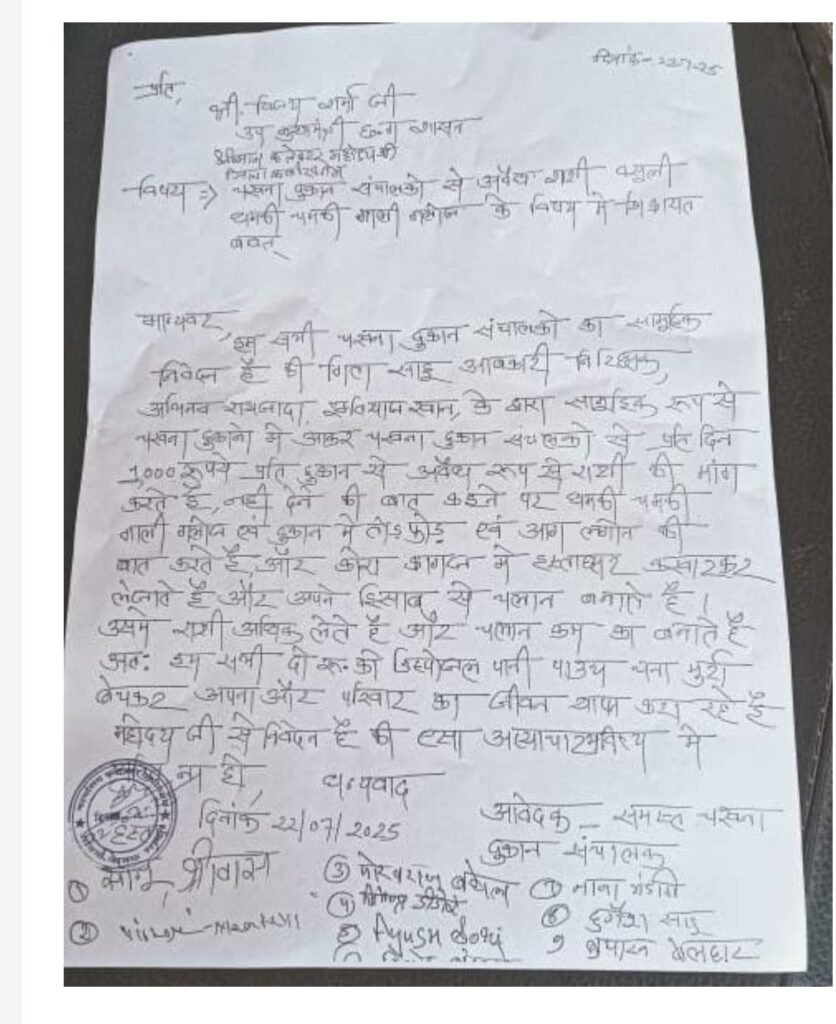 दिनांक - 22-7-25
प्रति,
श्री. विजय शर्मा जी
उप मुख्यमंत्री छ०ग शासन
श्रीमान कलेक्टर महोदय जी
जिला कबीरधाम
विषय => चखना दुकान संचालको से अवैध राशी वसुली
धमकी चमकी गाली गलौज के विषय मे शिकायत
बाबत्
मान्यवर,
हम सभी चखना दुकान संचालको का सामुहिक
निवेदन है की गिता साहू आबकारी निरिक्षक,
अभिनव रायजादा, इम्तियाज खान, के द्वारा सामुहिक रूप से
चखना दुकानो मे आकर चखना दुकान संचालको से प्रति दिन
1,000 रुपये प्रति दुकान से अवैध रूप से राशी की मांग
करते है, नही देने की बात कहने पर धमकी चमकी
गाली गलौज एवं दुकान मे तोडफोड़ एवं आग लगाने की
बात करते है, और कोरा कागज मे हस्ताक्षर करवाकर
लेजाते है और अपने हिसाब से चलान बनाते है।
उसमे राशी अधिक लेते है और चलान कम का बनाते है
अत: हम सभी दो रू. की डिस्पोजल पानी पाउच चना मुर्रा
बेचकर अपना और परिवार का जीवन यापन करा रहे है
महोदय जी से निवेदन है की एसा अत्याचार भविष्य मे
न हो,
धन्यवाद
दिनांक 22/07/2025
आवेदक - समस्त चखना
दुकान संचालक
① सोनू श्रीवास
②
③ बघेल
④
⑤ Ayush Soni
⑦ नाना
⑧ दुर्गेश साहू
9 भुपाल बेलदार